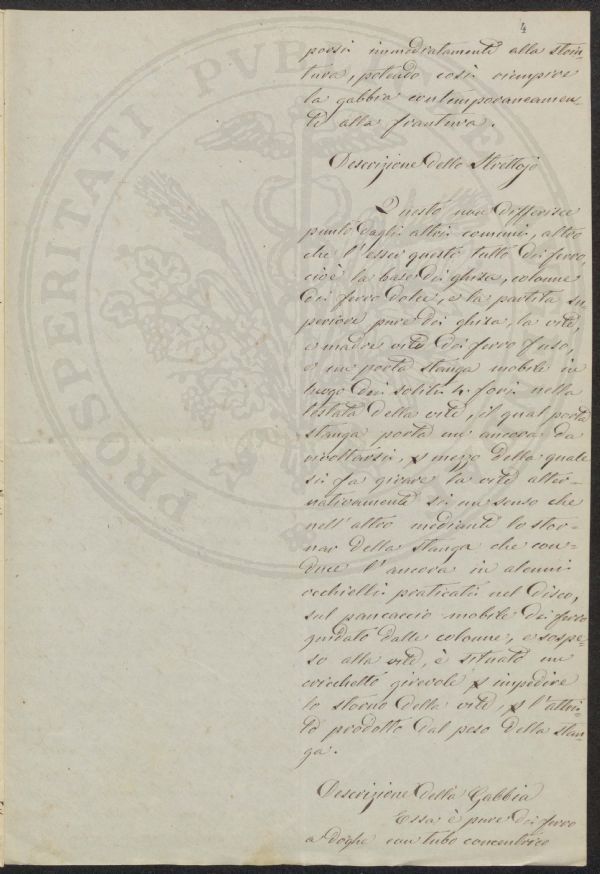 4
porsi immediatamente alla stoin-
tura, potendo così riempire
la gabbia contemporaneamen-
te alla frantura.
Descrizione dello Strettojo
Questo non differisce
punto dagli altri comuni, altro
che l'esser questo tutto di ferro,
cioè la base di ghisa, colonne
di ferro dolce, e la partita su-
periore pure di ghisa, la vite,
e madre vite di ferro fuso,
e un porta stanga mobile in
luogo dei soliti 4. fori nella
testata della vite, il qual porta
stanga porta un' ancora da
rivoltarsi, p mezzo della quale
si fa girare la vite alter-
nativamente sì in un senso che
nell'altro mediante lo stor-
nar della stanga che con-
duce l'ancora in alcuni
occhielli praticati nel disco,
sul pancaccio mobile di ferro
guidato dalle colonne, e sospe-
so alla vite, è situato un
cricchetto girevole p impedire
lo storno della vite, p l'attri-
to prodotto dal peso della stan-
ga.
Descrizione della Gabbia
Essa è pure di ferro
a doghe con tubo concentrico
PRO SPERITATI PVBLICAE